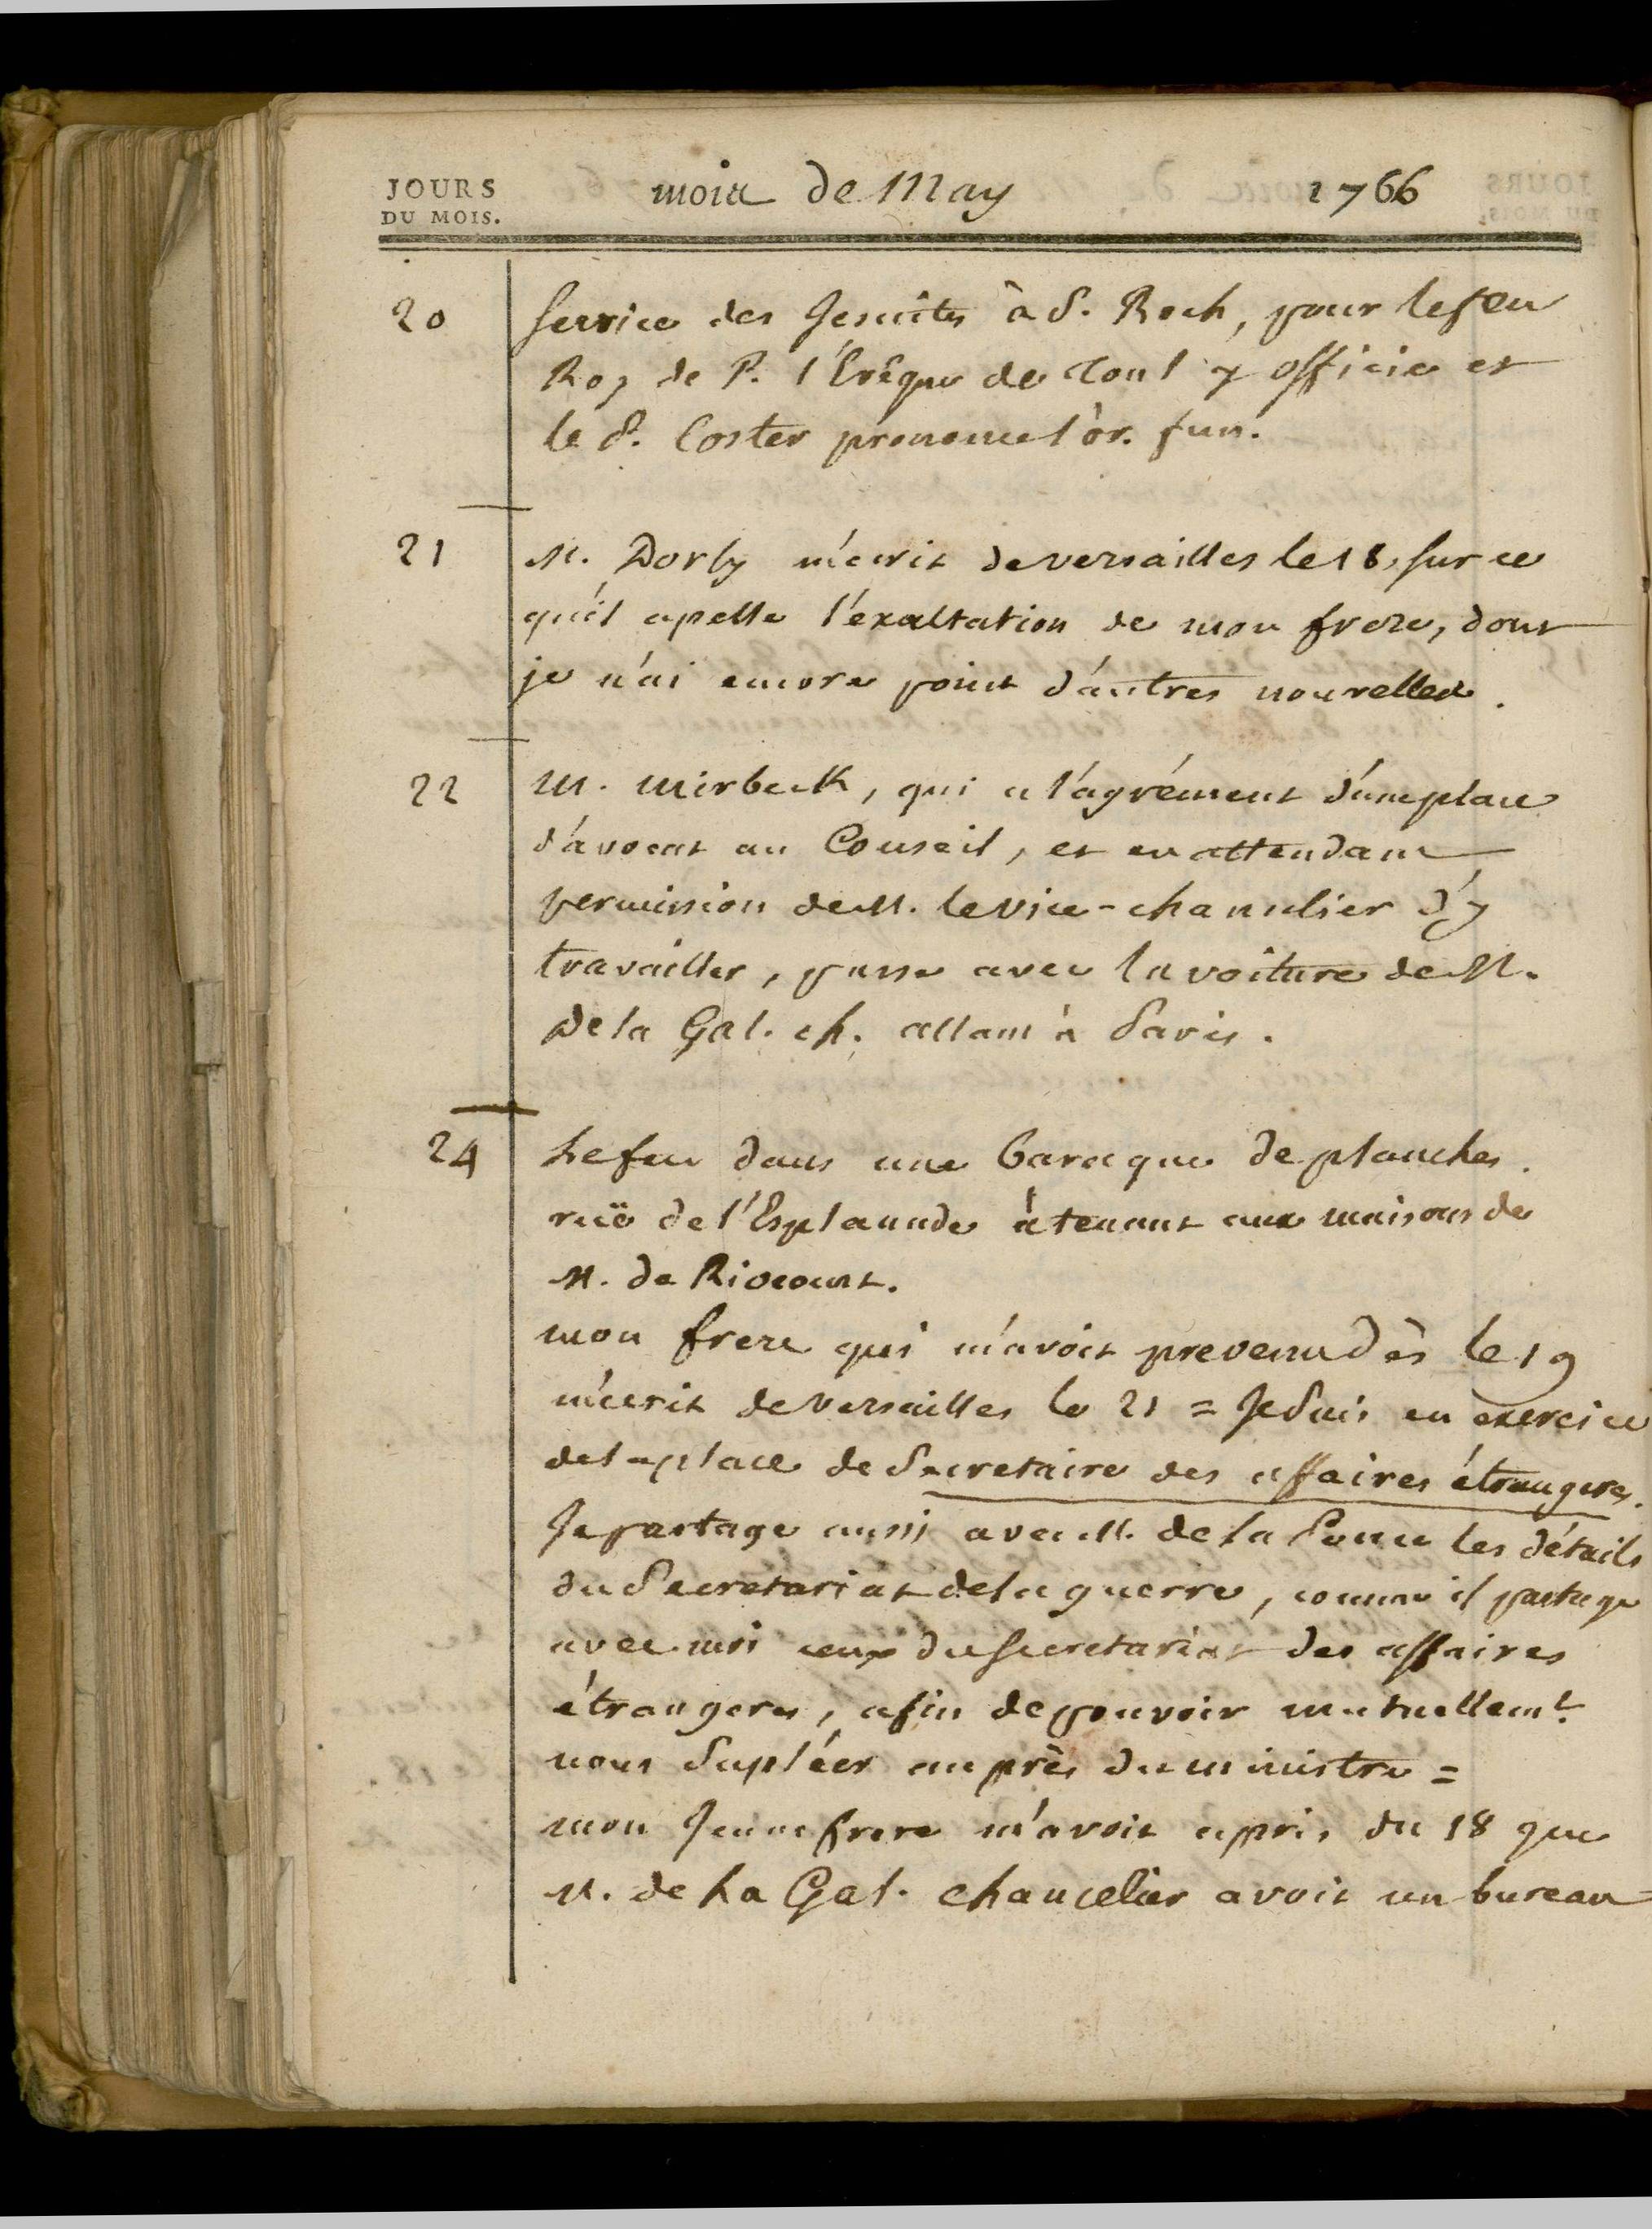 JOURS
DU MOIS.
mois de May 1766
20 Service des Jesuites à S. Roch, pour le feu
Roy de P. l'Evêque de Toul y officie et
le P. Coster prononce l'or. fun.
21 M. Dorly m'ecrit de versailles le 18. sur ce
qu'il apelle l'exaltation de mon frere, dont
je n'ai encore point d'autres nouvelles.
22 M. mirbeck, qui a l'agrément d'une place
d'avocat au Conseil, et en attendant
permission de M. le vice-chancelier d'y
travailler, passe avec la voiture de M.
De la Gal. ch. allant à Paris.
24 Le feu dans une baraque de planches.
ruë de l'Esplanade àtenant aux maisons de
M. de Riocourt.
mon frere qui m'avoit prevenu dès le 19
m'ecrit de versailles le 21 = Je suis en exercice
de la place de Secretaire des affaires étrangeres.
Je partage aussi avec M. de la Ponce les détails
du Secretariat de la guerre, comme il partage
avec moi ceux du secretariat des affaires
étrangeres, afin de pouvoir mutuellemt.
nous supléer auprès du ministre =
mon Jeune frere m'avoit apris du 18 que
M. de La Gal. chancelier avoit un bureau